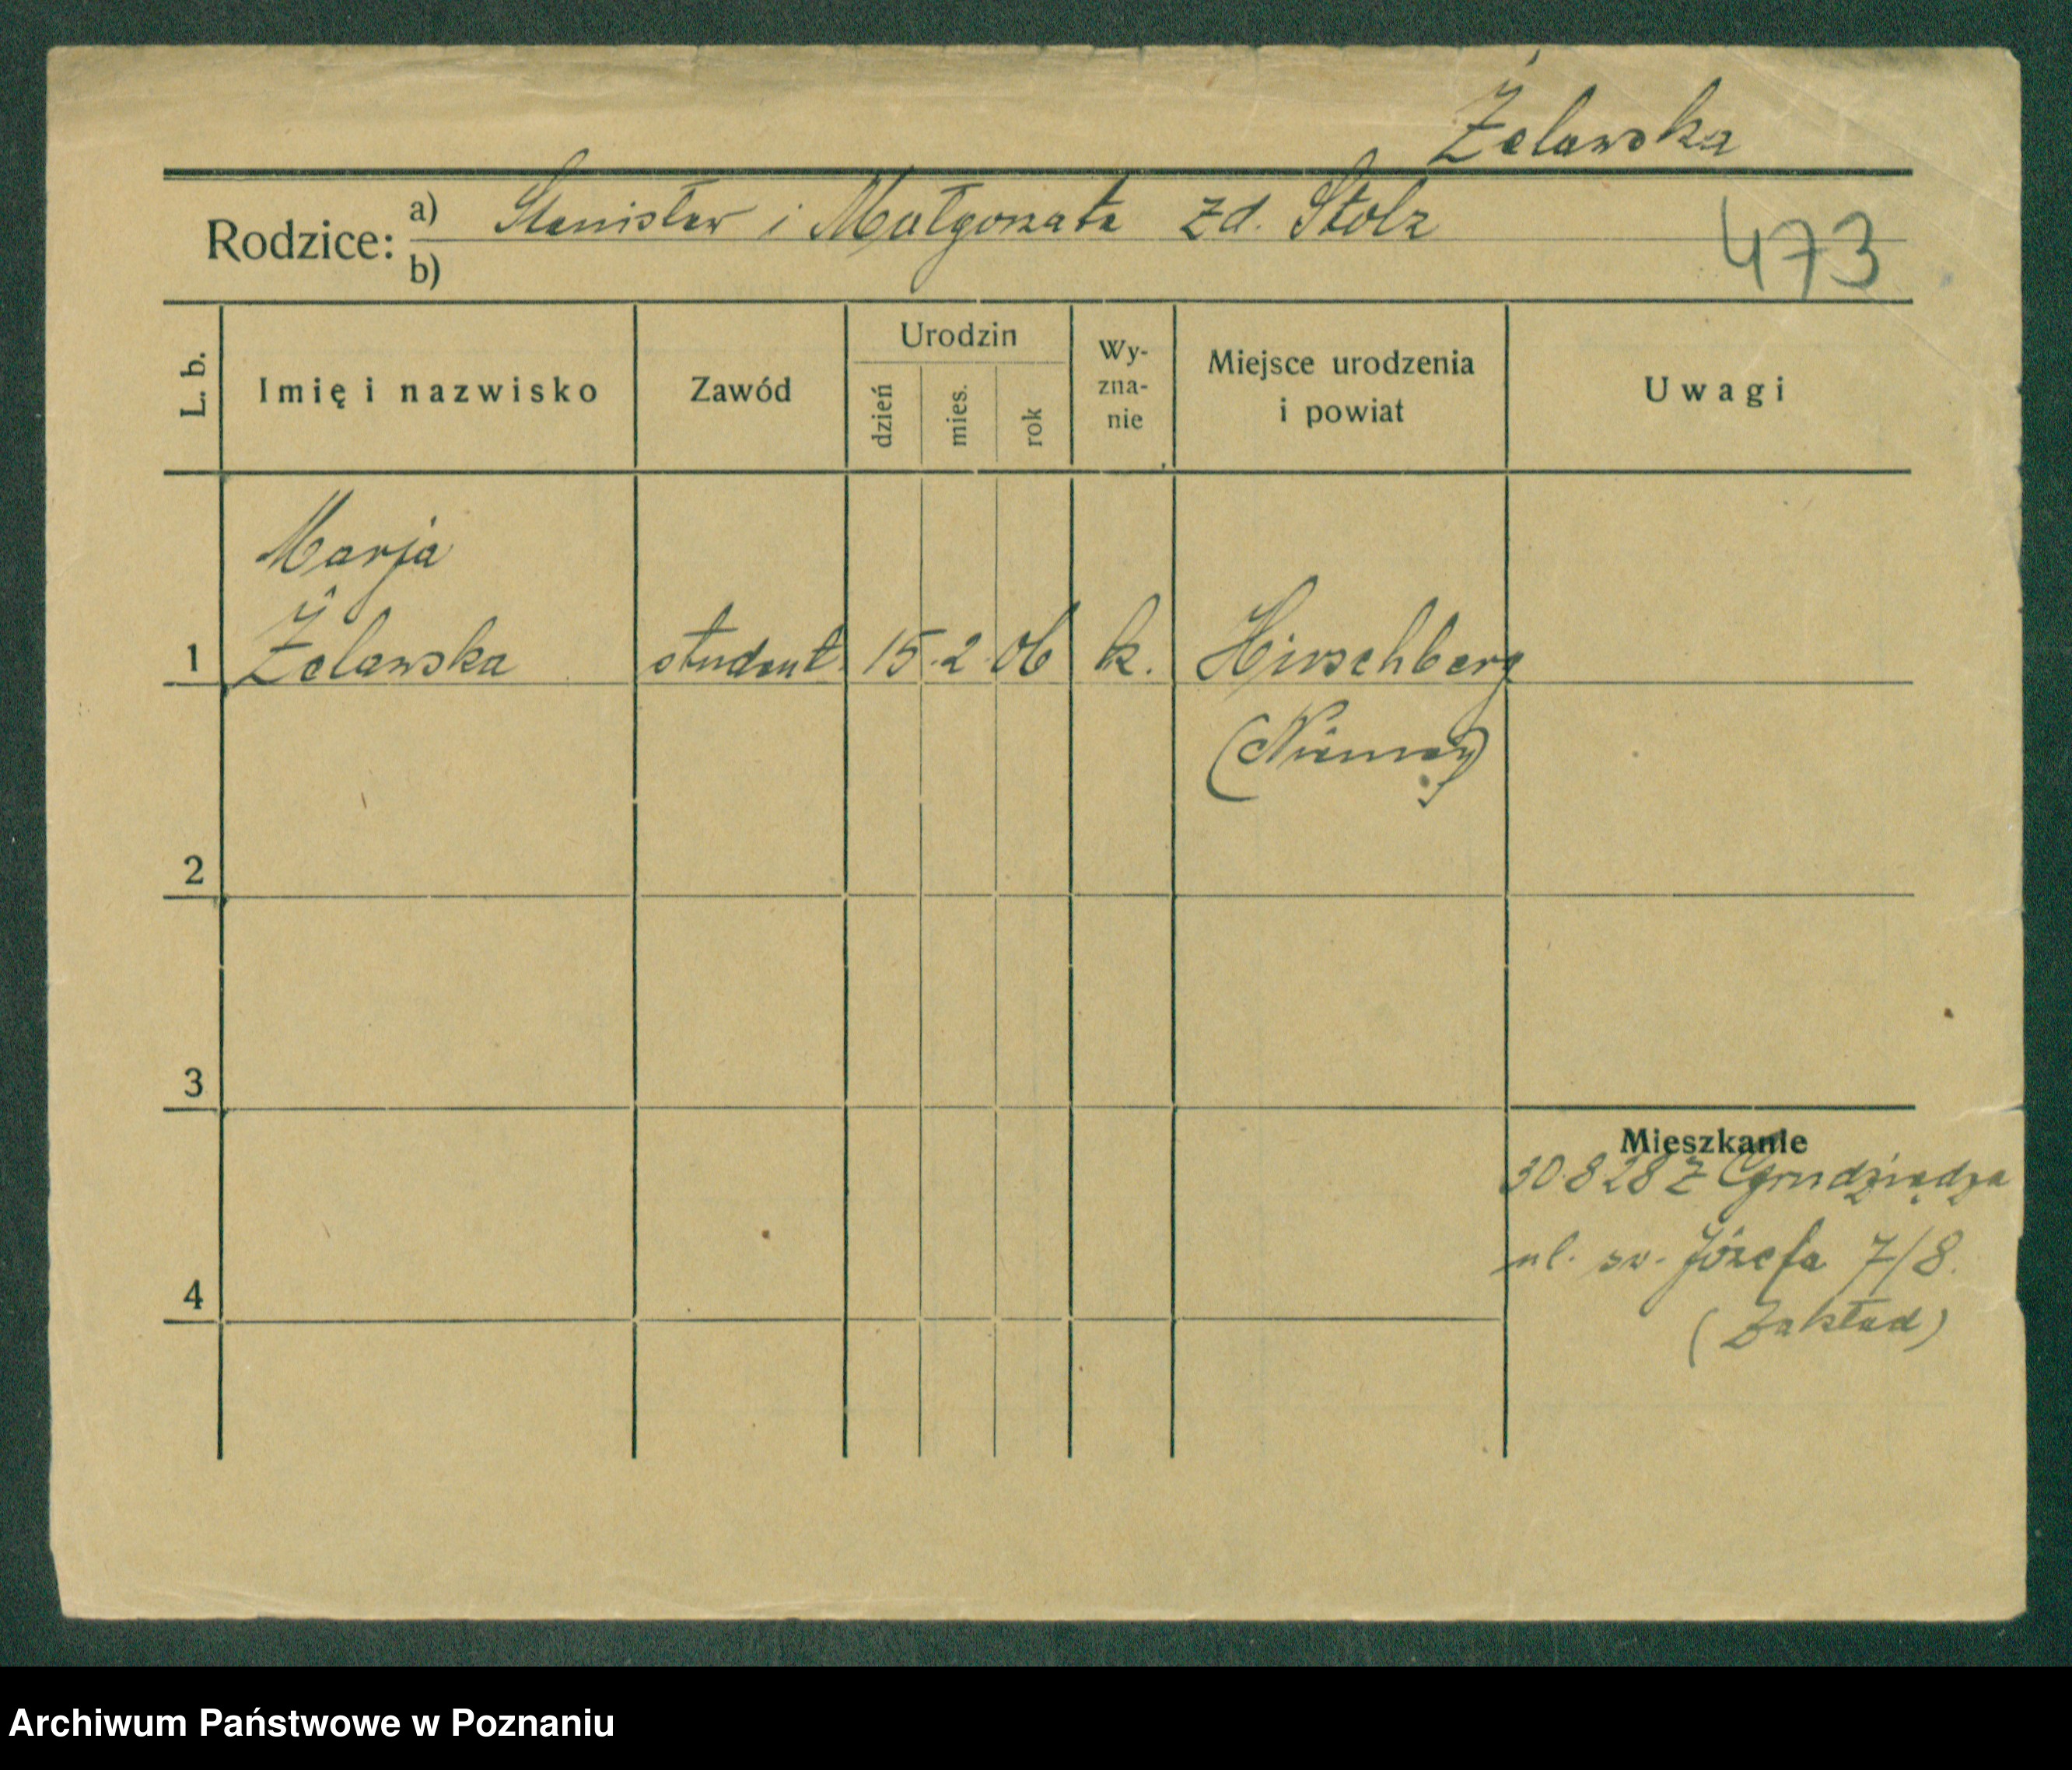 Żelawska
Rodzice: a) Stanisław i Małgorzata zd. Stolz
b)
473
L. b.
Imię i nazwisko
Zawód
Urodzin
dzień
mies.
rok
Wy-
zna-
nie
Miejsce urodzenia
i powiat
Uwagi
Marja
1 Żelawska student 15. 2. 06 k. Hirschberg
(Niemcy)
2
3
4
Mieszkanie
30.8.28 z Grudziądza
ul. św. Józefa 7/8.
(Zakład)
Archiwum Państwowe w Poznaniu